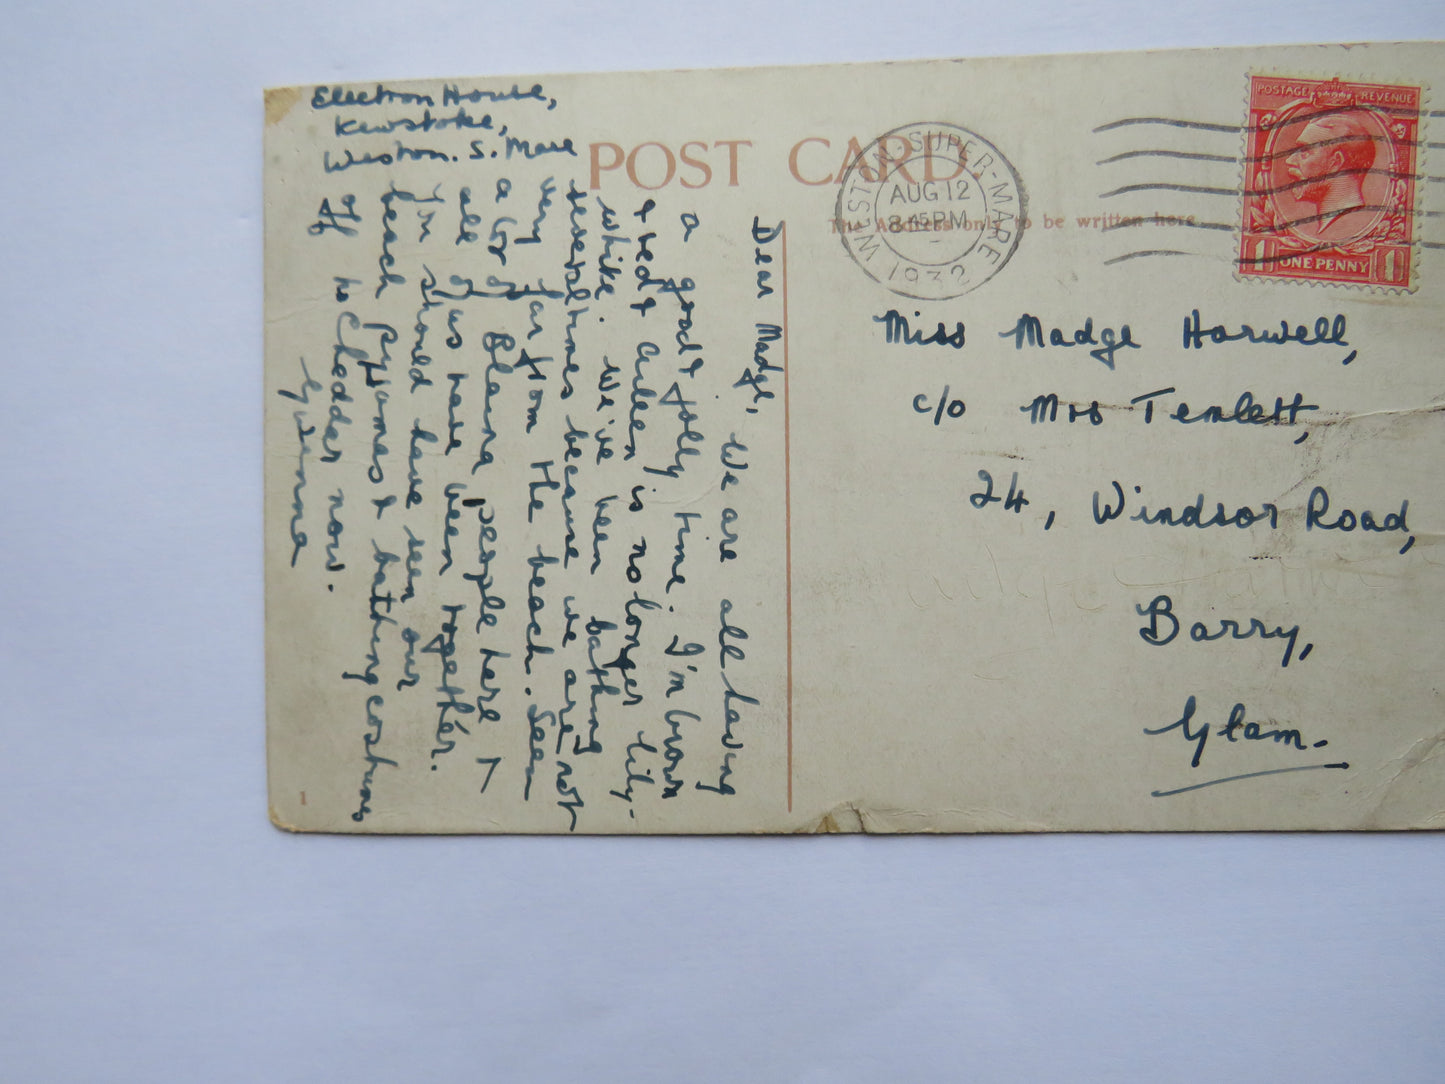 Electron House,
Kewstoke,
Weston. S. Mare
POST CARD.
The Address only to be written here
WESTON-SUPER-MARE
AUG 12
8.45PM
1932
POSTAGE REVENUE
1 ONE PENNY 1
Dear Madge,
We are all having
a good & jolly time. I'm brown
& red & Aileen is no longer lily-
white. We've been bathing
several times because we are not
very far from the beach. Seen
a lot of Blaina people here &
all of us have been together.
You should have seen our
beach pyjamas & bathing costumes
off to Cheddar now.
Gwenna
1
Miss Madge Harwell,
c/o Mrs Temlett,
24, Windsor Road,
Barry,
Glam.